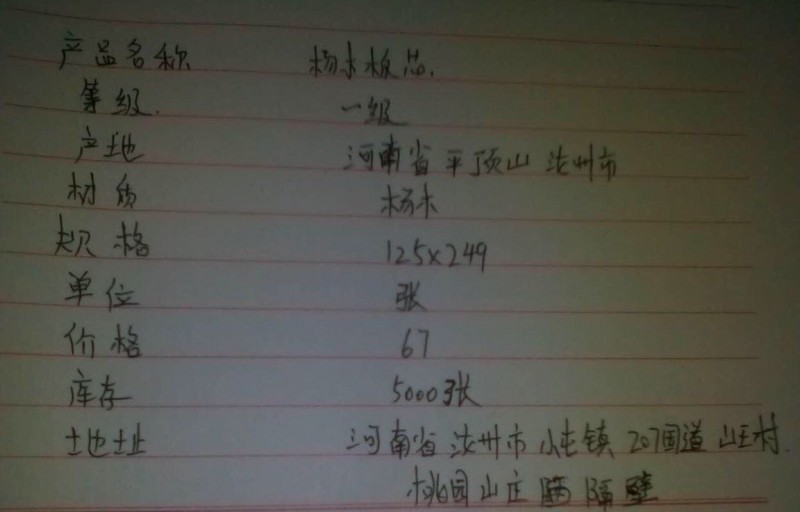 产品名称 杨木板芯.
等级. 一级
产地 河南省平顶山 汝州市
材质 杨木
规格 125×249
单位 张
价格 67
库存 5000张
地址 河南省汝州市小屯镇 207国道 山王村.
桃园山庄 隔壁